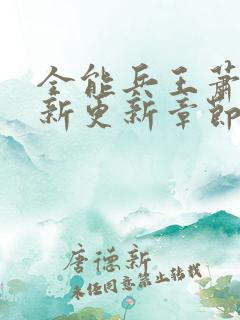 全能兵王萧
新更新章节
唐德新
未经同意禁止转载